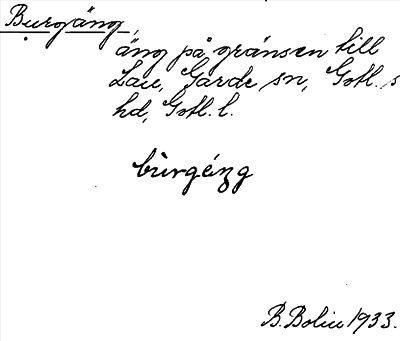 Burgäng,
äng på gränsen till
Lau, Garde sn, Gotl. s
hd, Gotl. l.
bùrgéng
B. Bolin 1933.